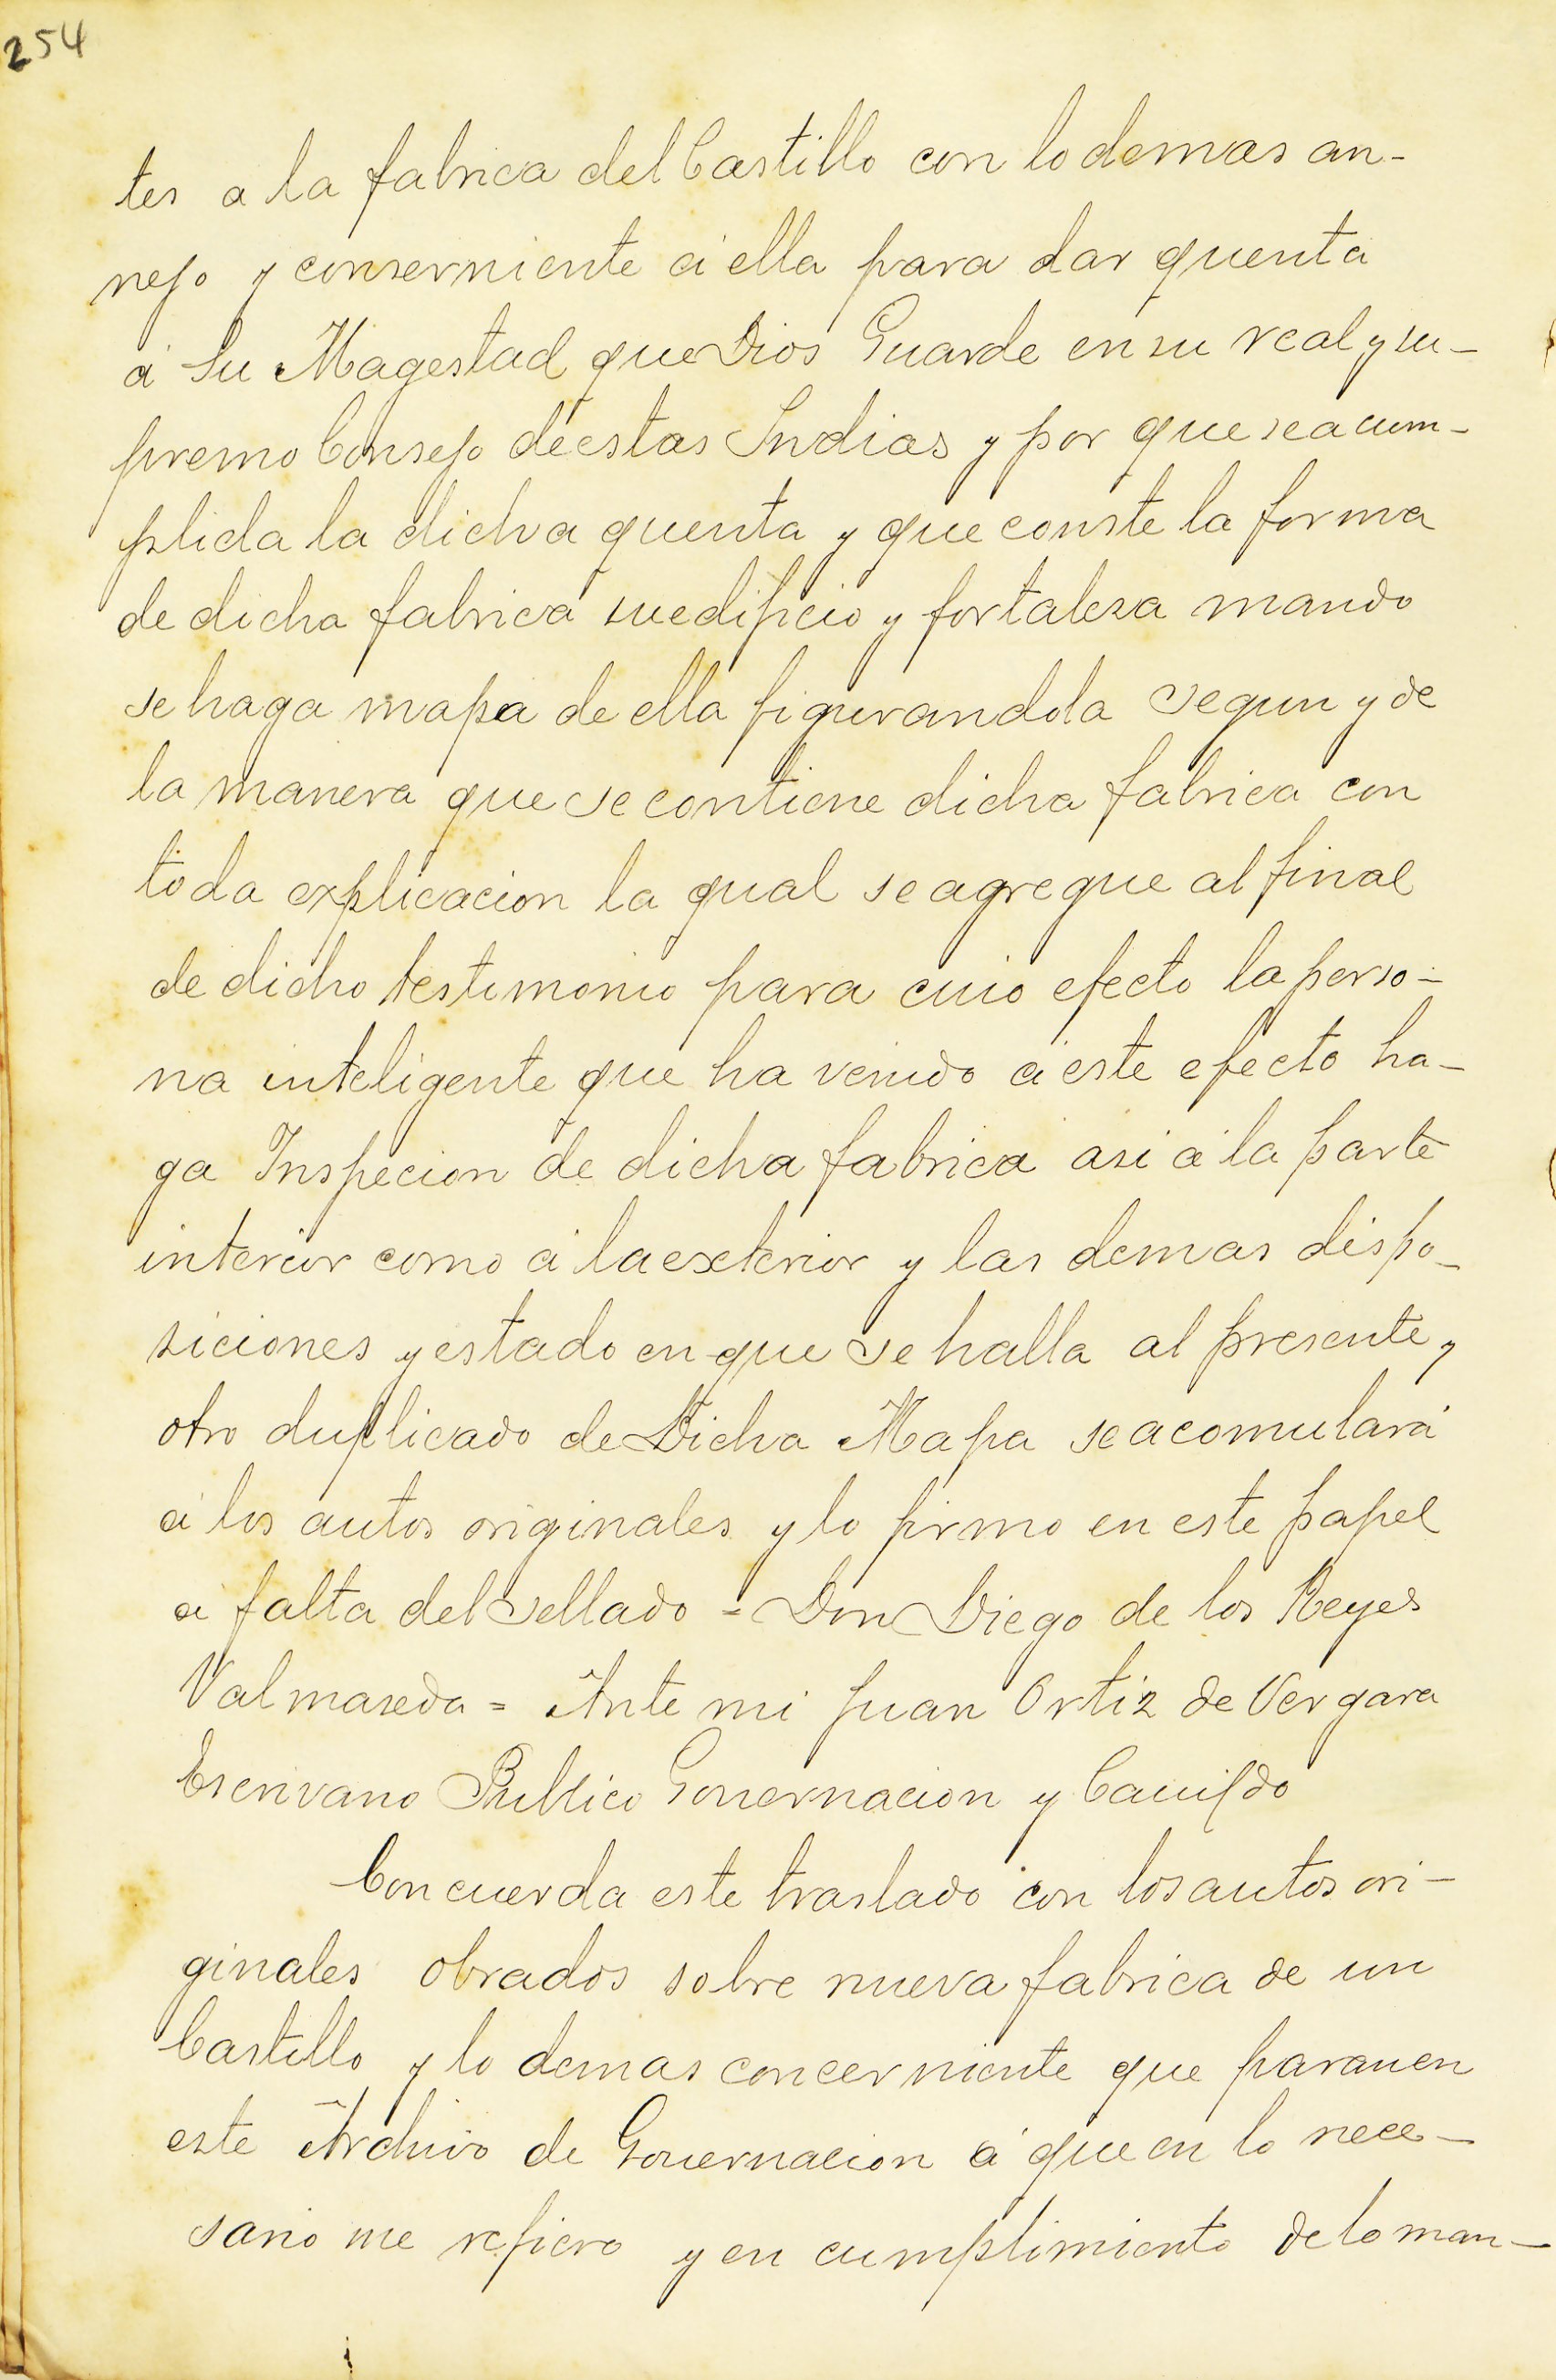 254
tes a la fabrica del Castillo con lo demas an-
nejo y conserniente á ella para dar quenta
á Su Magestad que Dios Guarde en su real y su-
premo Consejo de estas Indias y por que sea cum-
plida la dicha quenta y que conste la forma
de dicha fabrica su edificio y fortalesa mando
se haga mapa de ella figurandola segun y de
la manera que se contiene dicha fabrica con
toda explicacion la qual se agregue al final
de dicho testimonio para cuio efecto la perso-
na inteligente que ha venido á este efecto ha-
ga Inspecion de dicha fabrica asi á la parte
interior como á la exterior y las demas dispo-
siciones y estado en que se halla al presente y
otro duplicado de Dicha Mapa se acomulará
á los autos originales y lo firmo en este papel
á falta del sellado = Don Diego de los Reyes
Valmaseda = Ante mi Juan Ortiz de Vergara
Escrivano Publico Governacion y Cauildo
Concuerda este traslado con los autos ori-
ginales obrados sobre nueva fabrica de un
Castillo y lo demas concerniente que paran en
este Archivo de Gouernacion á que en lo nece-
sario me refiero y en cumplimiento de lo man-